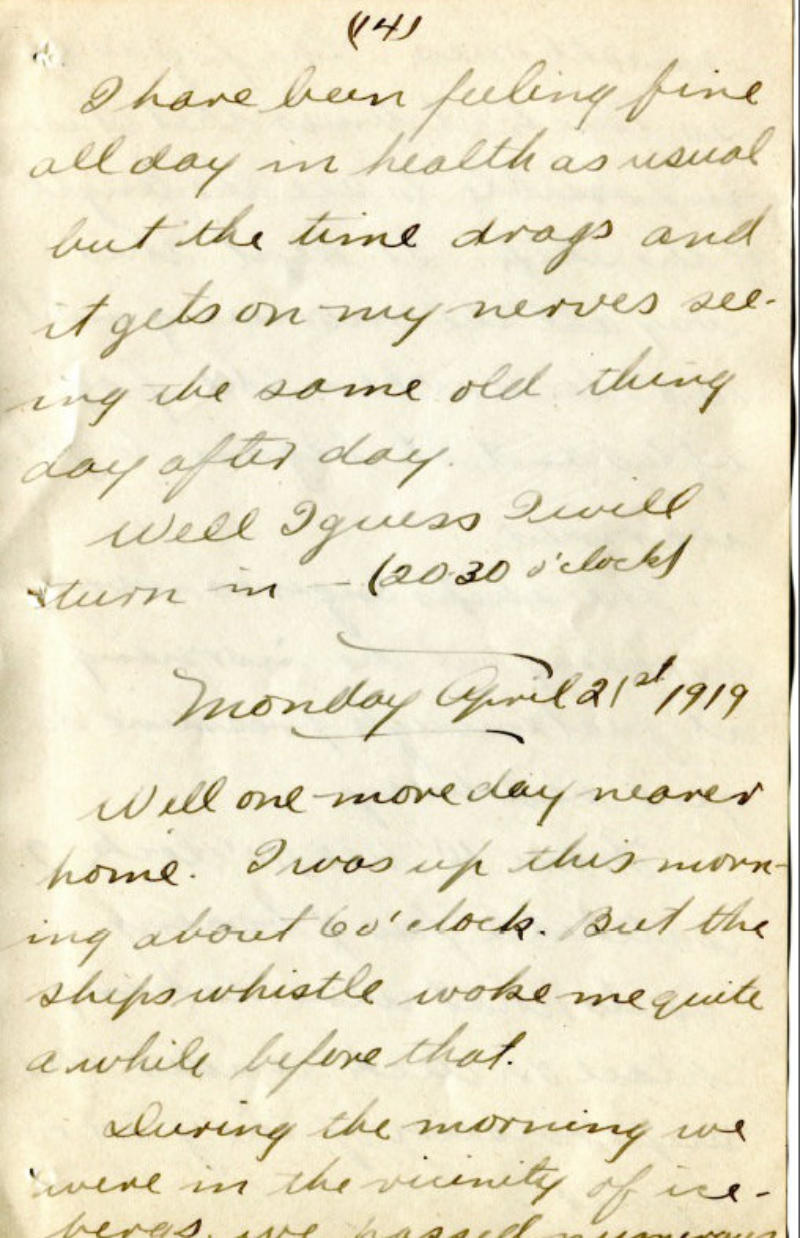 (14)
I have been feeling fine
all day in health as usual
but the time drags and
it gets on my nerves see-
ing the same old thing
day after day.
Well I guess I will
turn in — (20.30 o'clock)
Monday April 21st 1919
Well one more day nearer
home. I was up this morn-
ing about 6 o'clock. But the
ships whistle woke me quite
a while before that.
During the morning we
were in the vicinity of ice-
bergs. we passed numerous